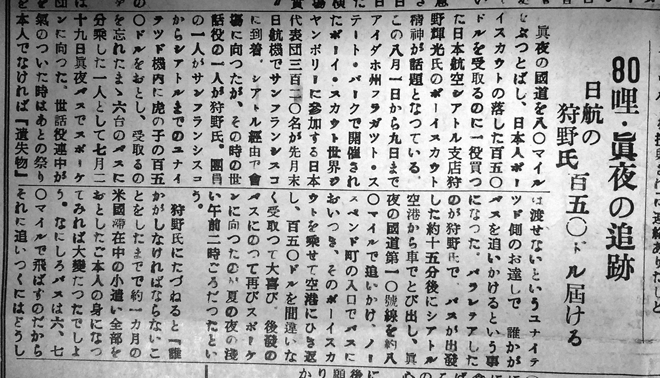 80哩・眞夜の追跡
日航の
狩野氏
百五〇ドル届ける
眞夜の國道を八〇マイル
をぶつとばし、日本人ボー
イスカウトの落した百五〇
ドルを受取るのに一役買つ
た日本航空シアトル支店狩
野輝光氏のボーイスカウト
精神が話題となつている。
この八月一日から九日まで
アイダホ州フラガツト・ス
テート・パークで開催され
たボーイ・スカウト世界ジ
ヤンボリーに参加する日本
代表団三百二〇名が先月末
日航機でサンフランシスコ
に到着、シアトル經由で會
場に向つたが、その時の世
話役の一人が狩野氏。團員
の一人がサンフランシスコ
からシアトルまでのユナイ
テツド機内に虎の子の百五
〇ドルをおとし、受取るの
を忘れたまゝ六台のバスに
分乗した一人として七月二
十九日眞夜バスでスポーケ
ンに向つた。世話役連中が
氣のついた時はあとの祭り
を本人でなければ『遺失物』
は渡せないというユナイテ
ツド側のお達しで、誰かが
バスを追いかけるという事
になつた。バラレテアした
のが狩野氏で、バスが出發
した約十五分後にシアトル
空港から車でとび出し、眞
夜の國道第一〇號線を約八
〇マイルで追いかけ、ノー
スベンド町の入口でバスに
おいつき、そのボーイスカ
ウトを乗せて空港にひき返
し、百五〇ドルを間違いな
く受取つて大喜び、後發の
バスにのつて再びスポーケ
ンに向つたのが夏の夜の淺
い午前二時ごろだつたとい
う。
狩野氏にたづねると『誰
かがしなければならないこ
とをしたまでで約一カ月の
米國滯在中の小遣い全部を
おとしたご本人の身になつ
てみれば大變だつたでしよ
う。なにしろバスは六、七
〇マイルで飛ばすのだから
それに追いつくにはどうし